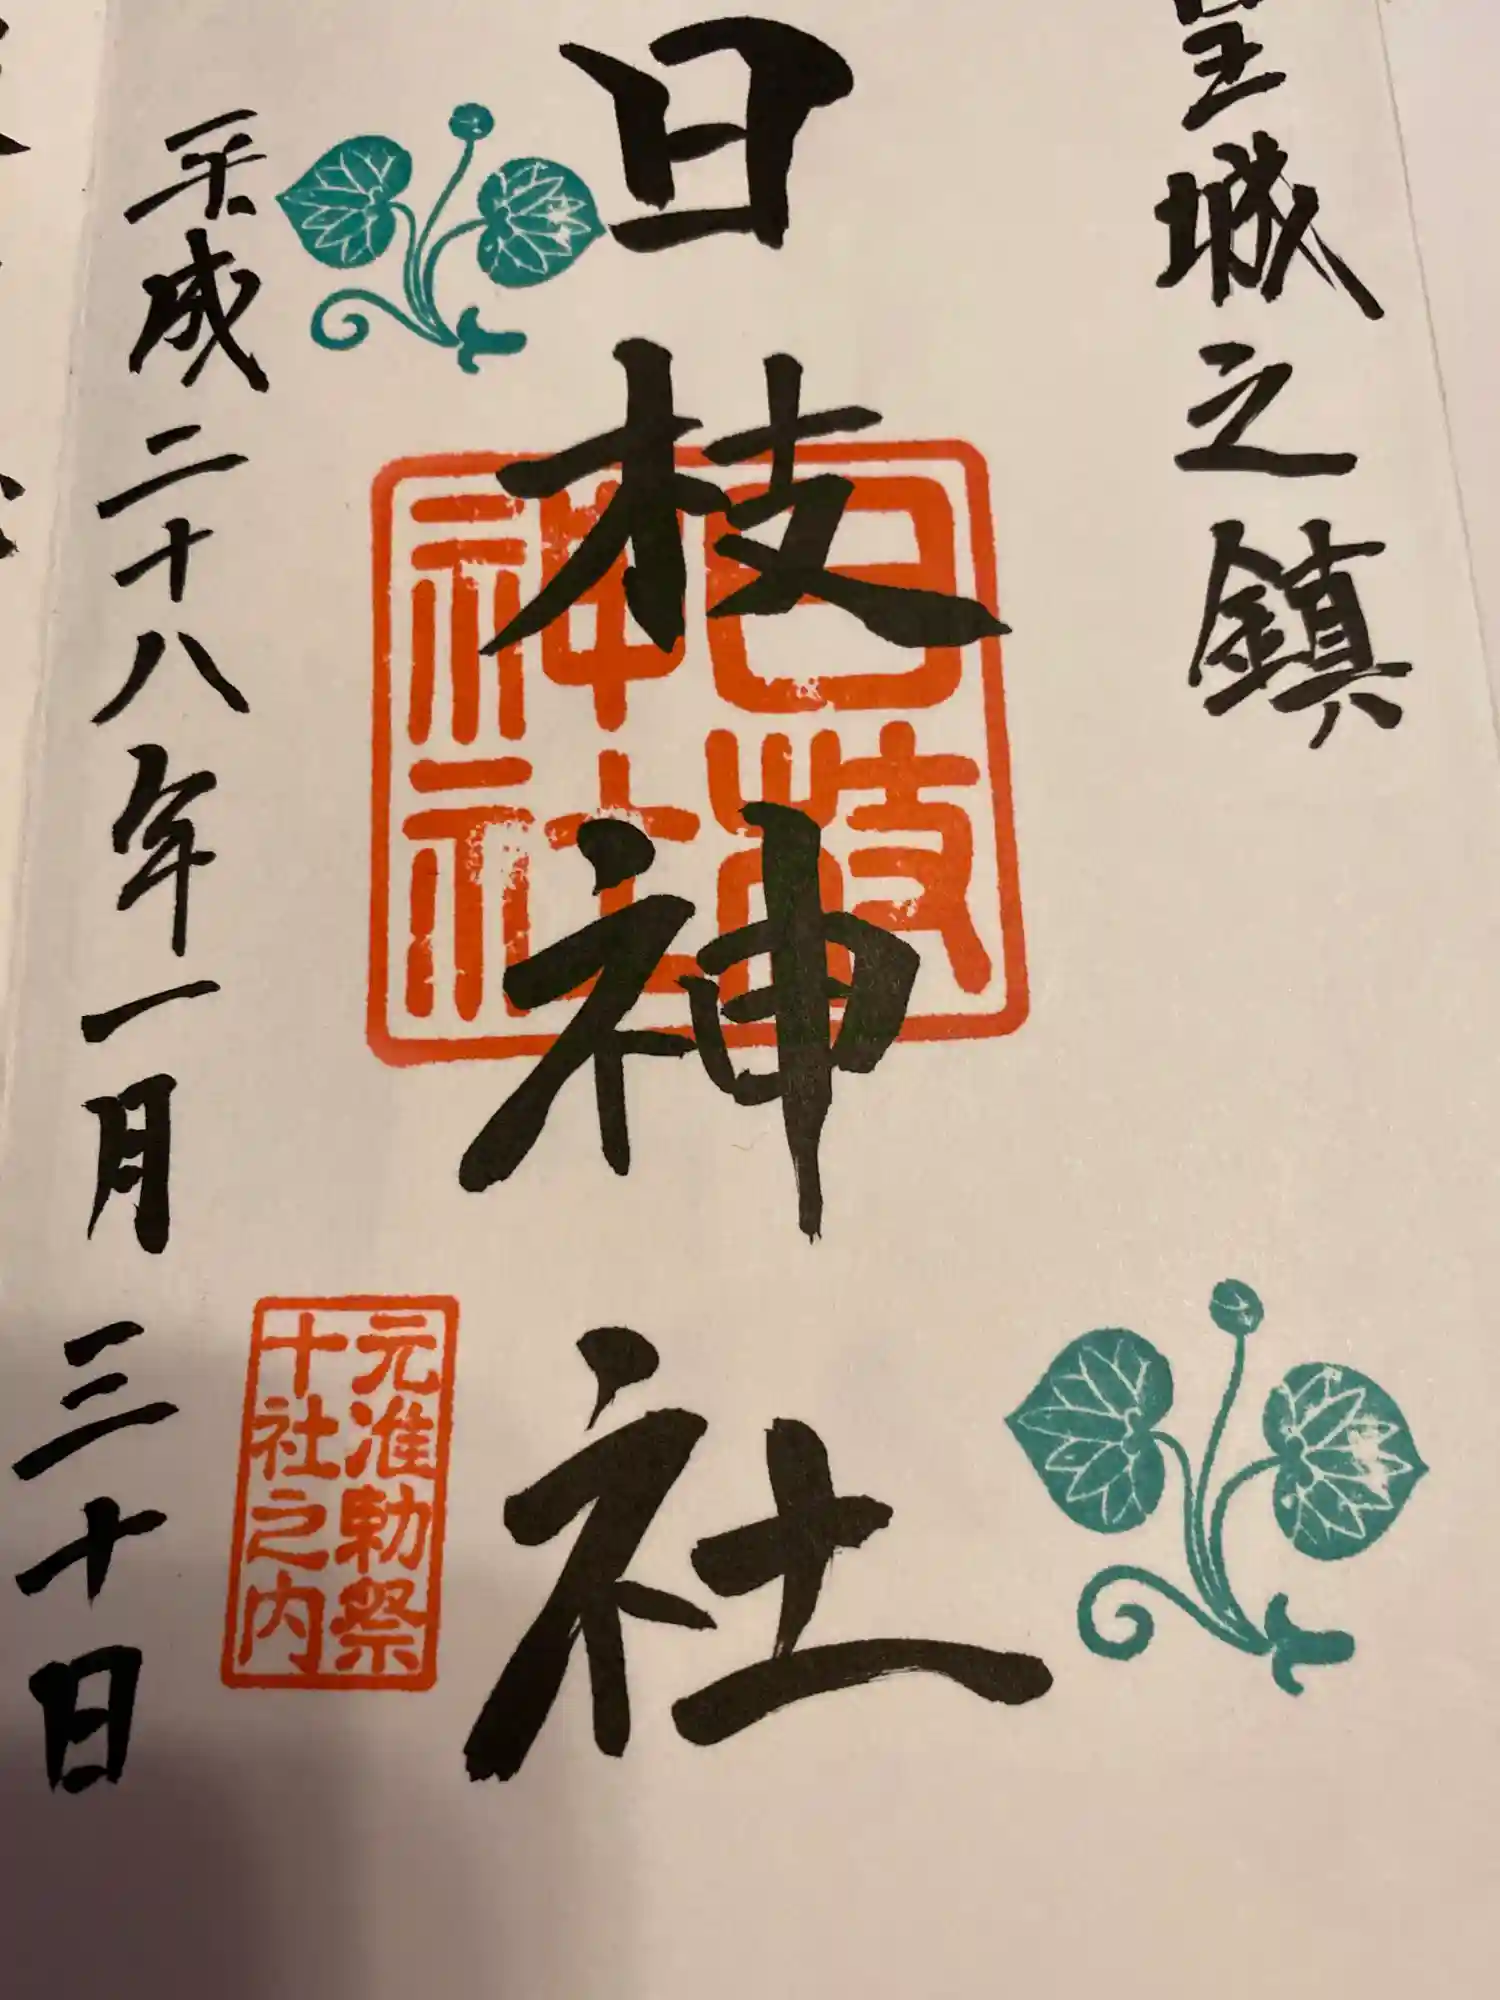 皇城之鎮
日枝神社
日枝神社
元准勅祭
十社之内
平成二十八年一月三十日